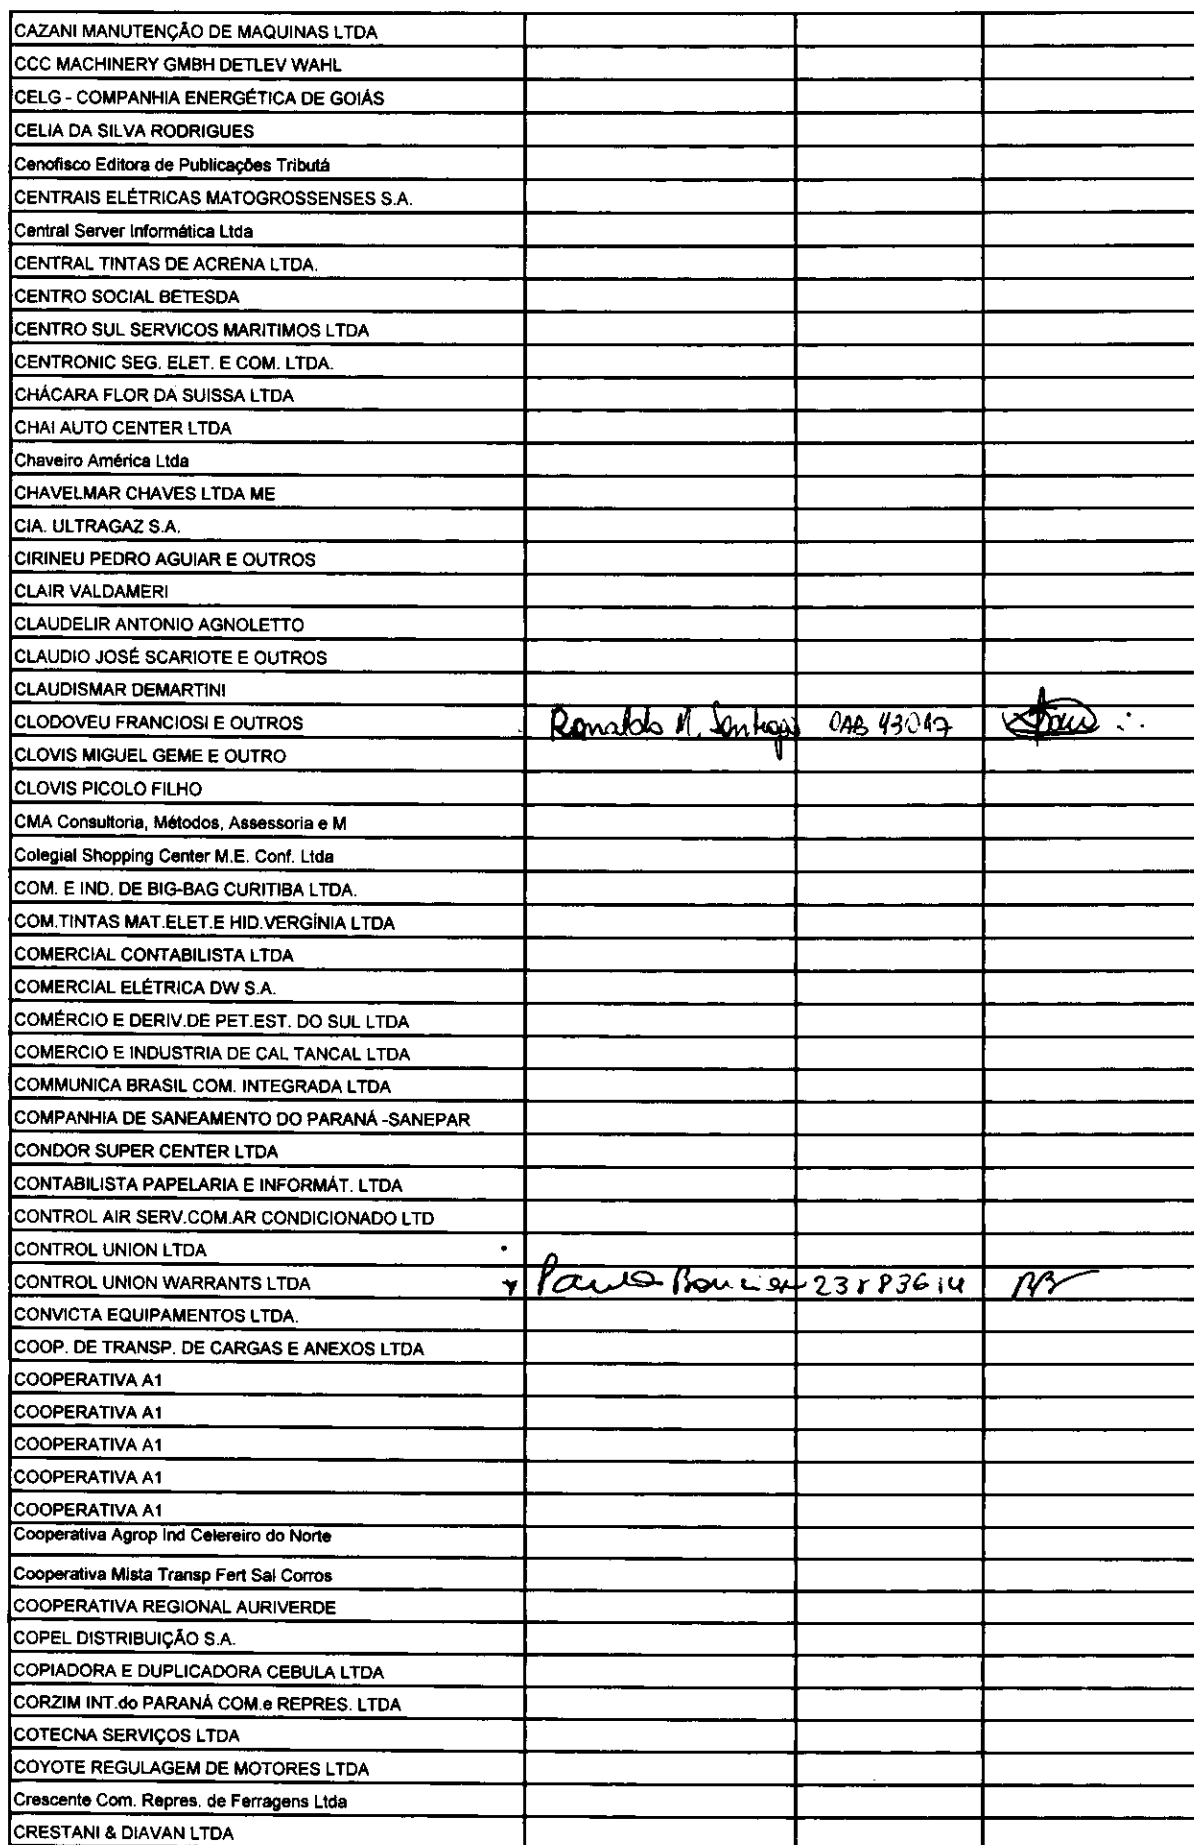 CAZANI MANUTENÇÃO DE MAQUINAS LTDA
CCC MACHINERY GMBH DETLEV WAHL
CELG - COMPANHIA ENERGÉTICA DE GOIÁS
CELIA DA SILVA RODRIGUES
Cenofisco Editora de Publicações Tributá
CENTRAIS ELÉTRICAS MATOGROSSENSES S.A.
Central Server Informática Ltda
CENTRAL TINTAS DE ACRENA LTDA.
CENTRO SOCIAL BETESDA
CENTRO SUL SERVICOS MARITIMOS LTDA
CENTRONIC SEG. ELET. E COM. LTDA.
CHÁCARA FLOR DA SUISSA LTDA
CHAI AUTO CENTER LTDA
Chaveiro América Ltda
CHAVELMAR CHAVES LTDA ME
CIA. ULTRAGAZ S.A.
CIRINEU PEDRO AGUIAR E OUTROS
CLAIR VALDAMERI
CLAUDELIR ANTONIO AGNOLETTO
CLAUDIO JOSÉ SCARIOTE E OUTROS
CLAUDISMAR DEMARTINI
CLODOVEU FRANCIOSI E OUTROS Ronaldo M. Santiago OAB 43047
CLOVIS MIGUEL GEME E OUTRO
CLOVIS PICOLO FILHO
CMA Consultoria, Métodos, Assessoria e M
Colegial Shopping Center M.E. Conf. Ltda
COM. E IND. DE BIG-BAG CURITIBA LTDA.
COM.TINTAS MAT.ELET.E HID.VERGÍNIA LTDA
COMERCIAL CONTABILISTA LTDA
COMERCIAL ELÉTRICA DW S.A.
COMÉRCIO E DERIV.DE PET.EST. DO SUL LTDA
COMERCIO E INDUSTRIA DE CAL TANCAL LTDA
COMMUNICA BRASIL COM. INTEGRADA LTDA
COMPANHIA DE SANEAMENTO DO PARANÁ -SANEPAR
CONDOR SUPER CENTER LTDA
CONTABILISTA PAPELARIA E INFORMÁT. LTDA
CONTROL AIR SERV.COM.AR CONDICIONADO LTD
CONTROL UNION LTDA
CONTROL UNION WARRANTS LTDA Paulo
CONVICTA EQUIPAMENTOS LTDA.
COOP. DE TRANSP. DE CARGAS E ANEXOS LTDA
COOPERATIVA A1
COOPERATIVA A1
COOPERATIVA A1
COOPERATIVA A1
COOPERATIVA A1
Cooperativa Agrop Ind Celereiro do Norte
Cooperativa Mista Transp Fert Sal Corros
COOPERATIVA REGIONAL AURIVERDE
COPEL DISTRIBUIÇÃO S.A.
COPIADORA E DUPLICADORA CEBULA LTDA
CORZIM INT.do PARANÁ COM.e REPRES. LTDA
COTECNA SERVIÇOS LTDA
COYOTE REGULAGEM DE MOTORES LTDA
Crescente Com. Repres. de Ferragens Ltda
CRESTANI & DIAVAN LTDA